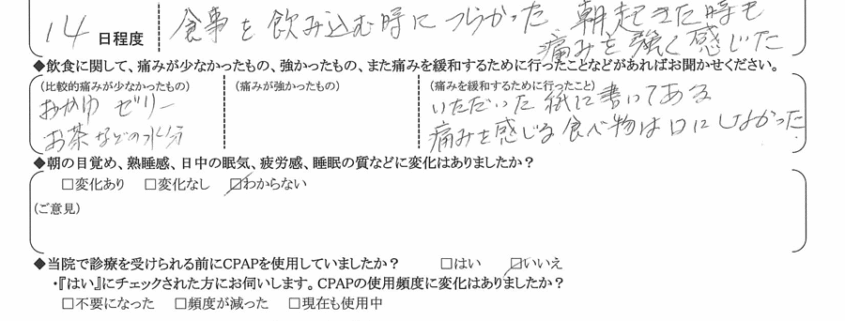 食事を飲み込む時につらかった 朝起きた時も
14 日程度 痛みを強く感じた
◆飲食に関して、痛みが少なかったもの、強かったもの、また痛みを緩和するために行ったことなどがあればお聞かせください。
(比較的痛みが少なかったもの) (痛みが強かったもの) (痛みを緩和するために行ったこと)
おかゆ ゼリー いただいた紙に書いてある
お茶などの水分 痛みを感じる食べ物は口にしなかった.
◆朝の目覚め、熟睡感、日中の眠気、疲労感、睡眠の質などに変化はありましたか?
☐変化あり ☐変化なし ☑わからない
(ご意見)
◆当院で診療を受けられる前にCPAPを使用していましたか? ☐はい ☑いいえ
・『はい』にチェックされた方にお伺いします。CPAPの使用頻度に変化はありましたか?
☐不要になった ☐頻度が減った ☐現在も使用中